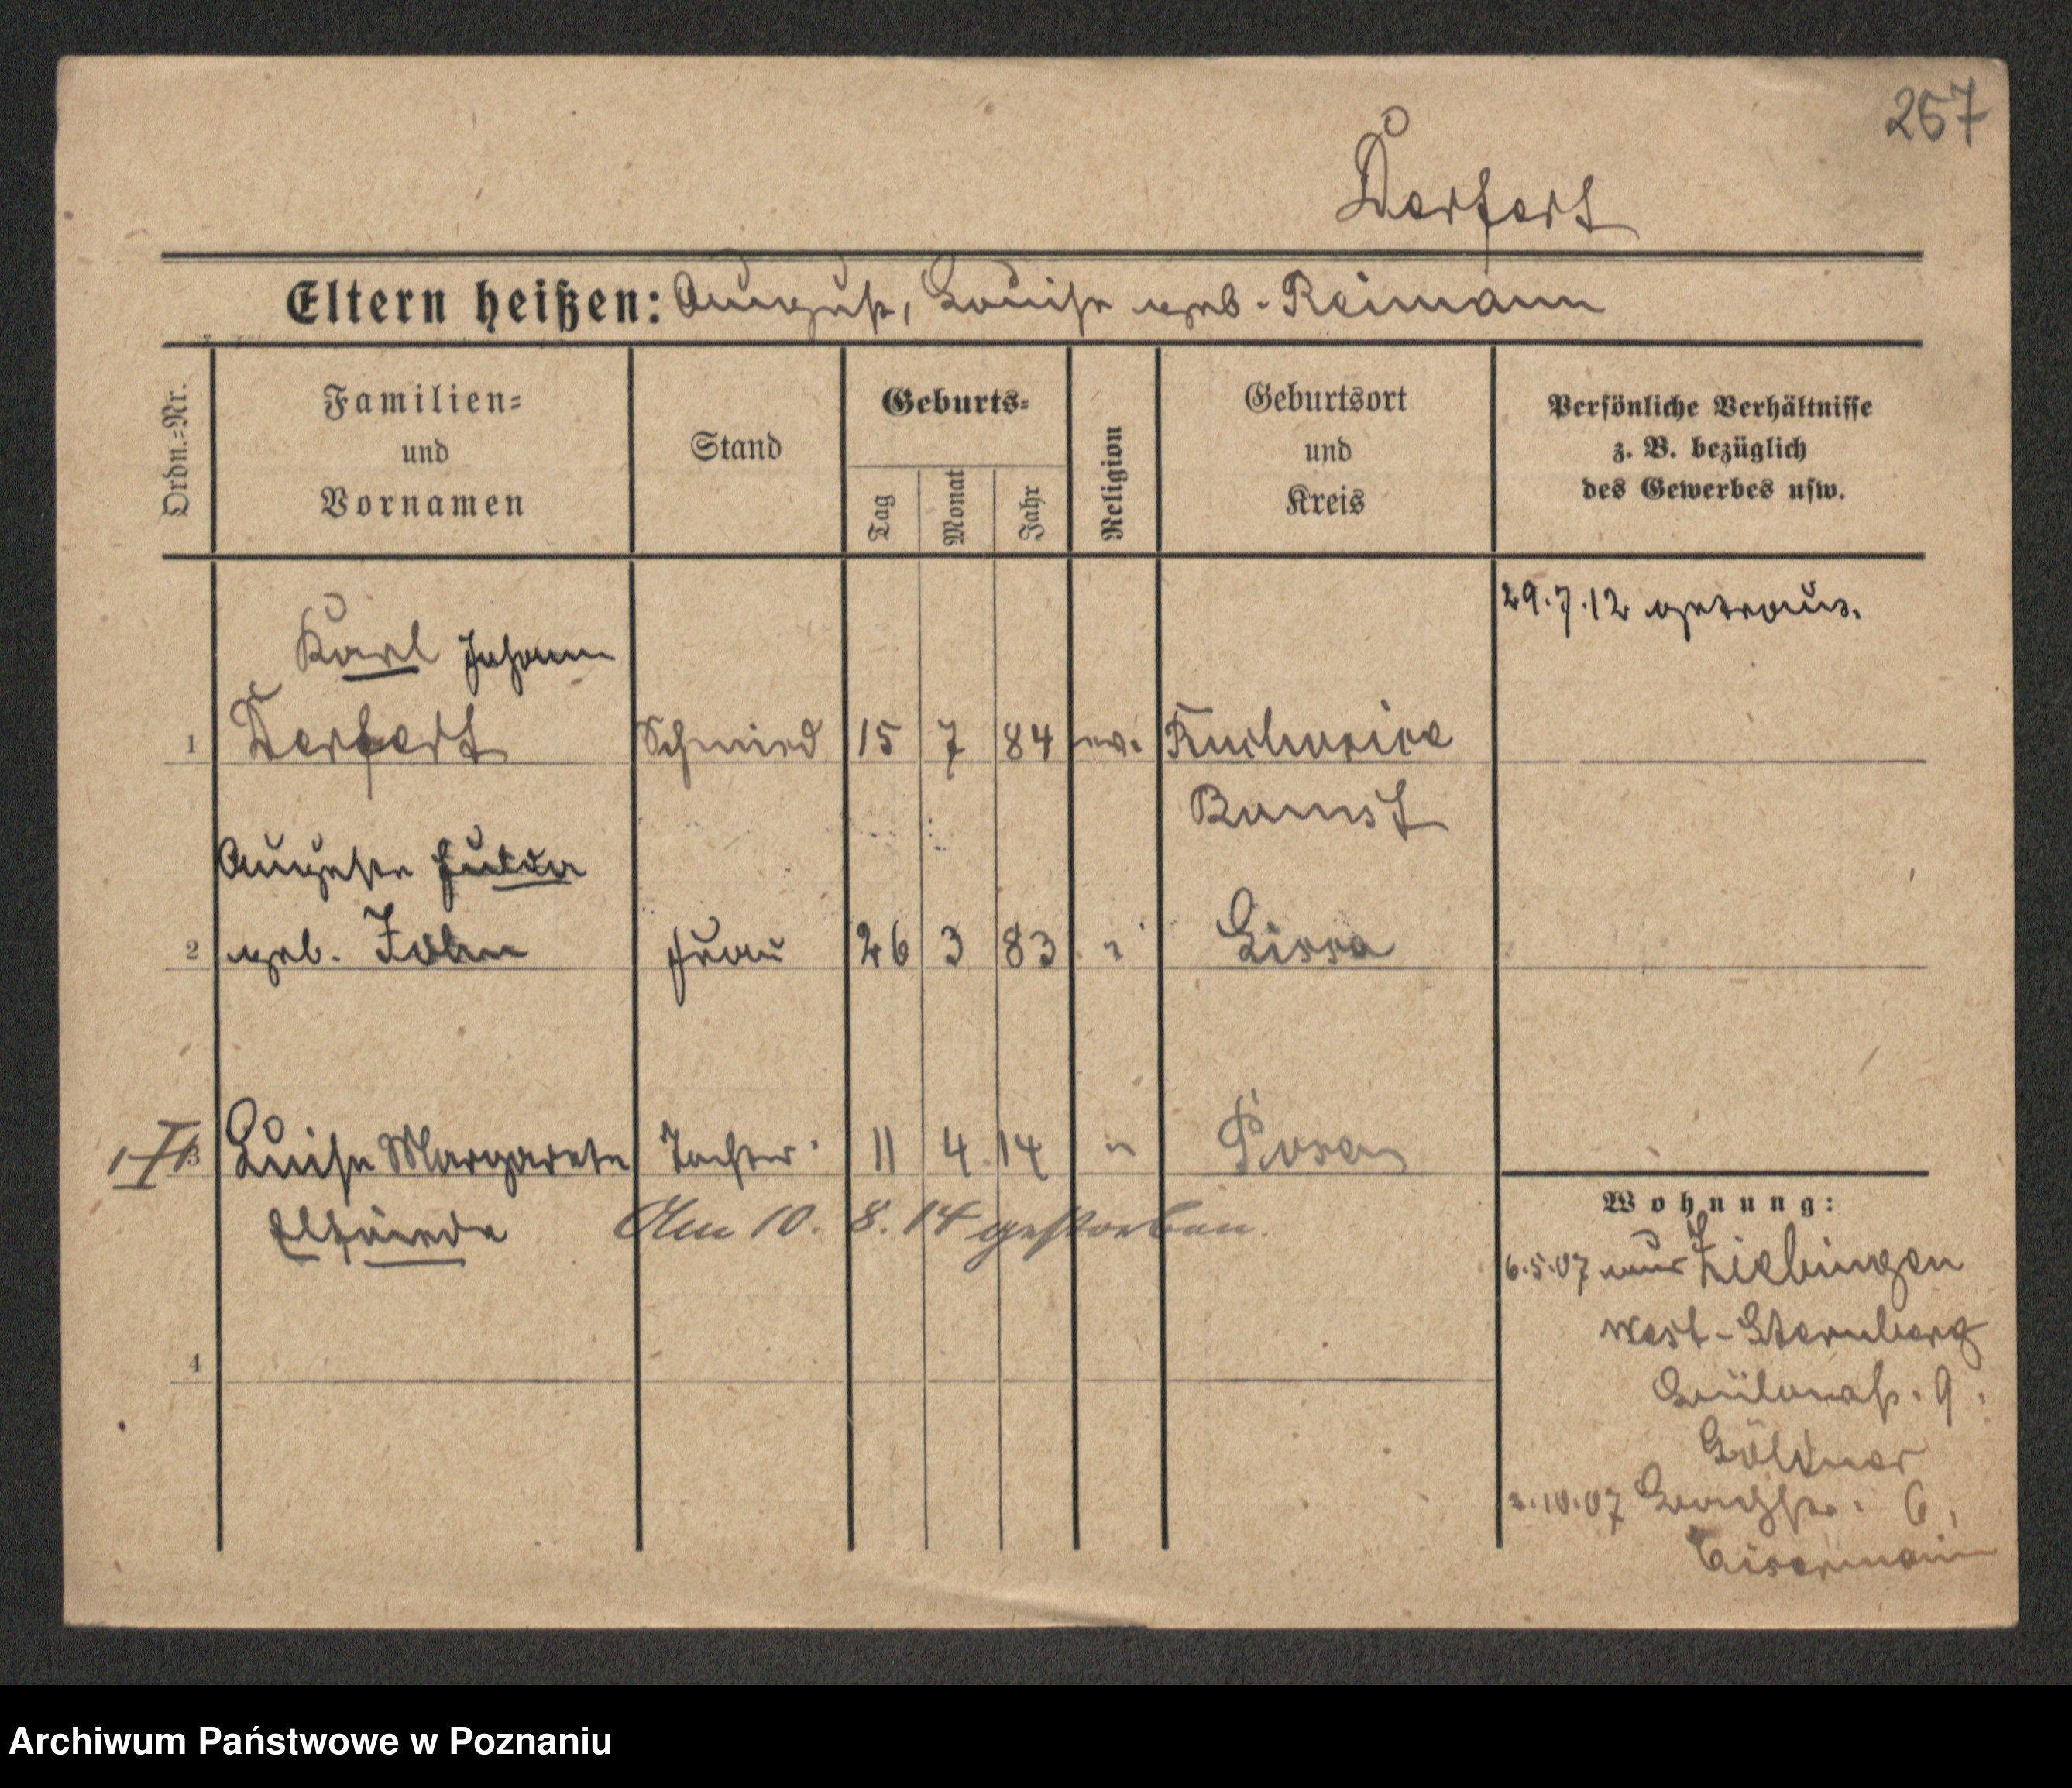 257
Derfert
Eltern heißen: August, Louise geb. Reimann
Ordn.=Nr.
Familien=
und
Vornamen
Stand
Geburts=
Tag
Monat
Jahr
Religion
Geburtsort
und
Kreis
Persönliche Verhältnisse
z. B. bezüglich
des Gewerbes usw.
29.7.12 getraut.
Karl Johann
1 Derfert Schmied 15 7 84 ev.
Bomst
Auguste Hulda
2 geb. John Frau 26 3 83 " Lissa
3 Luise Margarete Tochter 11 4 14 " Posen
Elfriede Am 10. 8. 14 gestorben.
4
Wohnung:
6.5.07 aus Ziebingen
West-Sternberg
9.
Göldner
2.10.07 6,
Eisermann
Archiwum Państwowe w Poznaniu